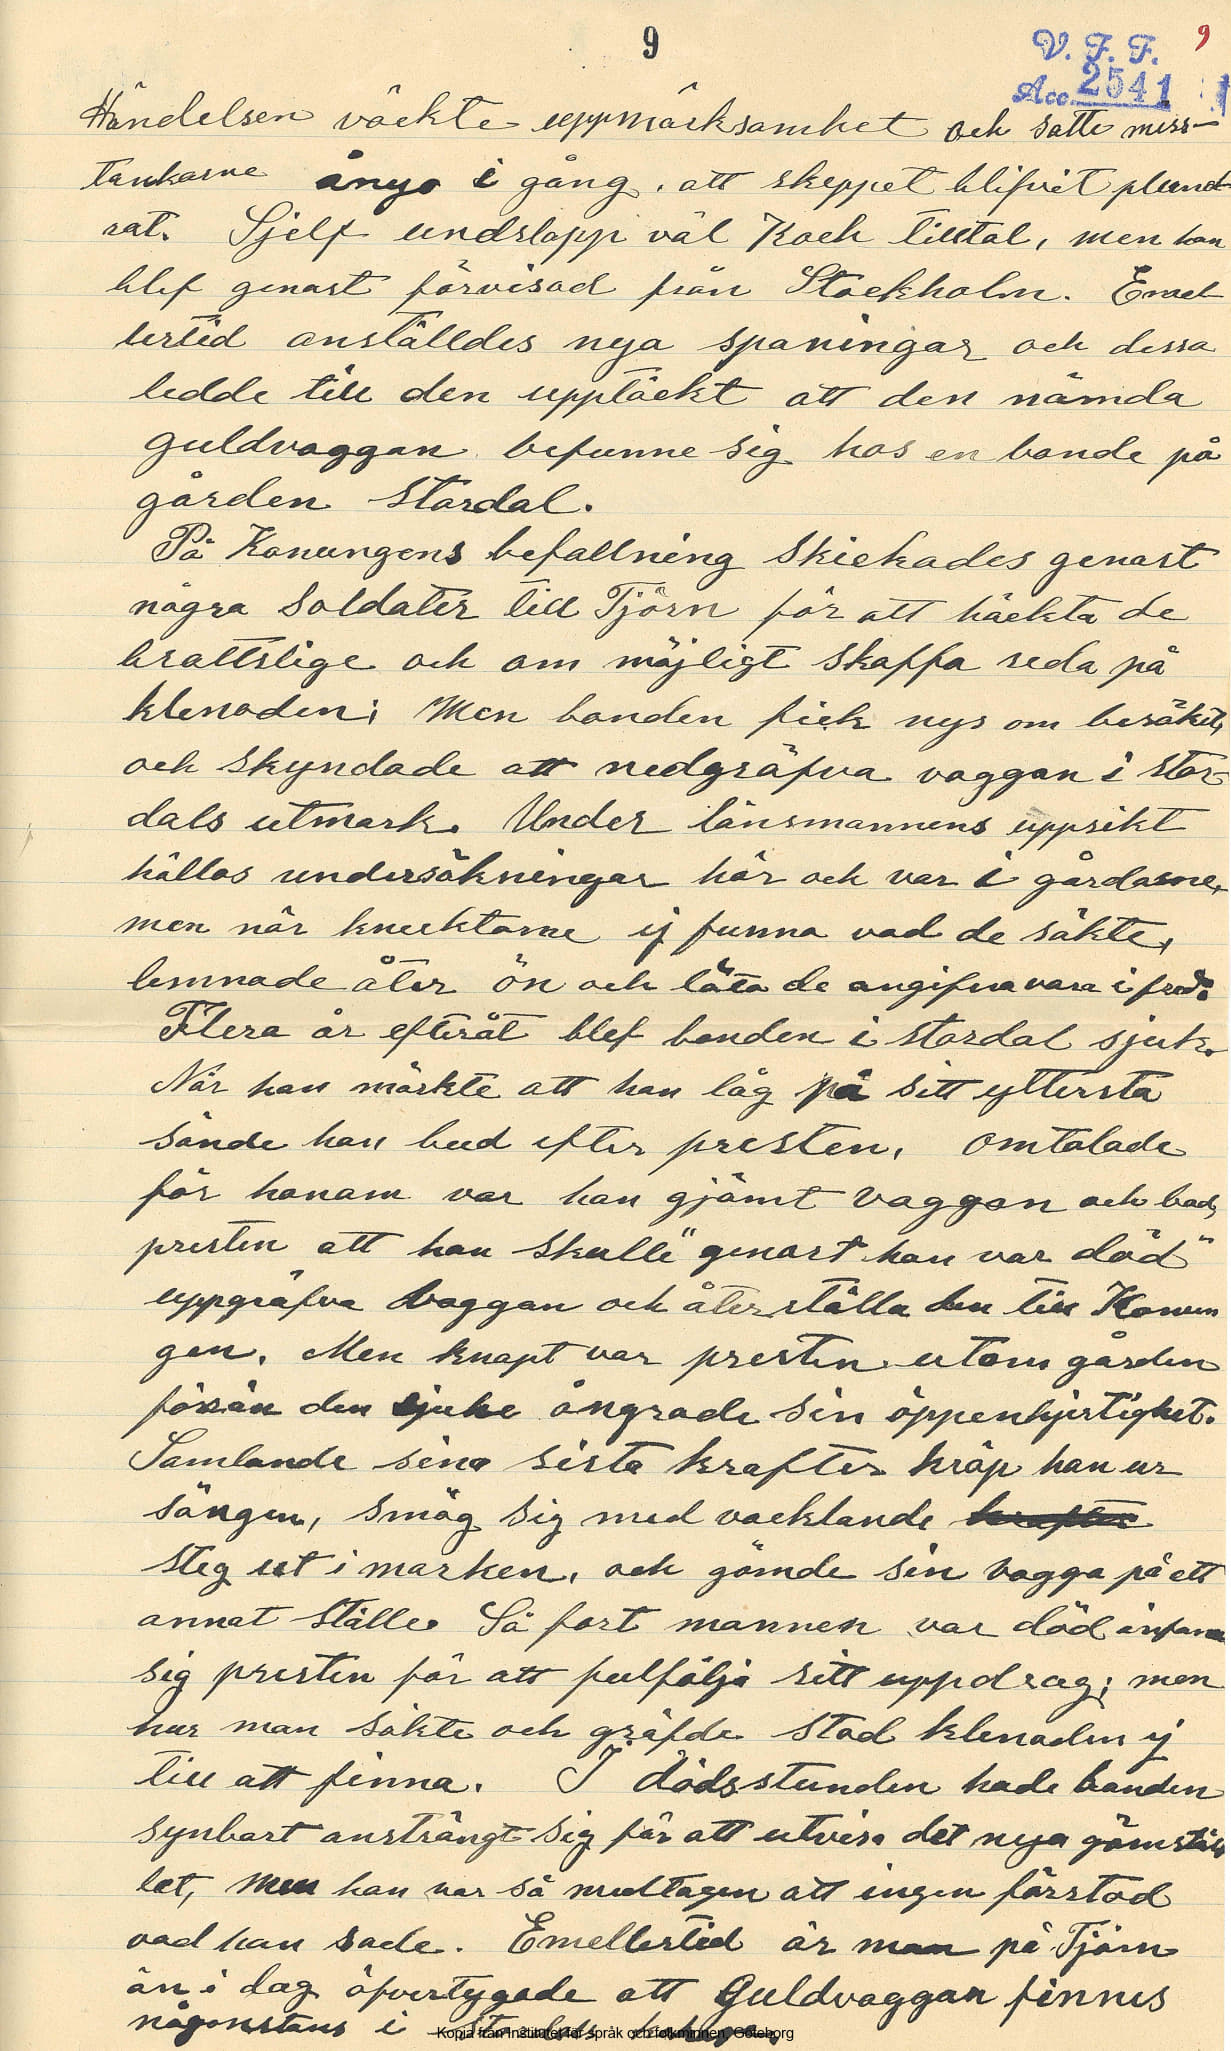 9
V. F. F.
9
Acc. 2541
Händelsen väckte uppmärksamhet och satte miss-
tankarne ånyo i gång, att skeppet blifvit plund
rat. Sjelf undslapp väl Koch tilltal, men han
blef genast förvisad från Stockholm. Emel
lertid anställdes nya spaningar och dessa
ledde till den upptäckt att den nämda
guldvaggan befunne sig hos en bonde på
gården Stordal.
På Konungens befallning skickades genast
några soldater till Tjörn för att häckta de
brottslige och om möjligt skaffa reda på
klenoden; Men bonden fick nys om besöket,
och skyndade att nedgräfva vaggan i Stor-
dals utmark. Under länsmannens uppsikt
hållos undersökningar här och var i gårdarne,
men när knecktarne ej funna vad de sökte,
lemnade åter ön och läto de angifna vara i fred.
Flera år efteråt blef bonden i Stordal sjuk.
När han märkte att han låg på sitt yttersta
sände han bud efter presten, omtalade
för honom var han gjömt vaggan och bad
presten att han skulle "genast han var död"
uppgräfva vaggan och återställa den till Konun
gen. Men knapt var presten utom gården
förän den sjuke ångrade sin öppenhjertighet.
Samlande sina sista krafter kröp han ur
sängen, smög sig med vacklande krafter
steg ut i marken, och gömde sin vagga på ett
annat ställe. Så fort mannen var död infann
sig presten för att fullfölja sitt uppdrag; men
hur man sökte och gräfde stod klenoden ej
till att finna. I dödsstunden hade bonden
synbart ansträngt sig för att utvisa det nya gömstäl
let, men han var så medtagen att ingen förstod
vad han sade. Emellertid är man på Tjörn
än i dag öfvertygade att Guldvaggan finnes
någonstans i
Kopia från Institutet för språk och folkminnen, Göteborg